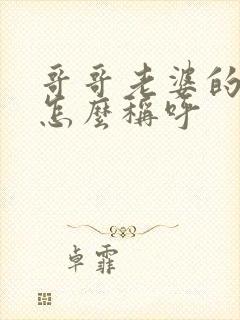 哥哥老婆的
怎麼稱呼
卓霏